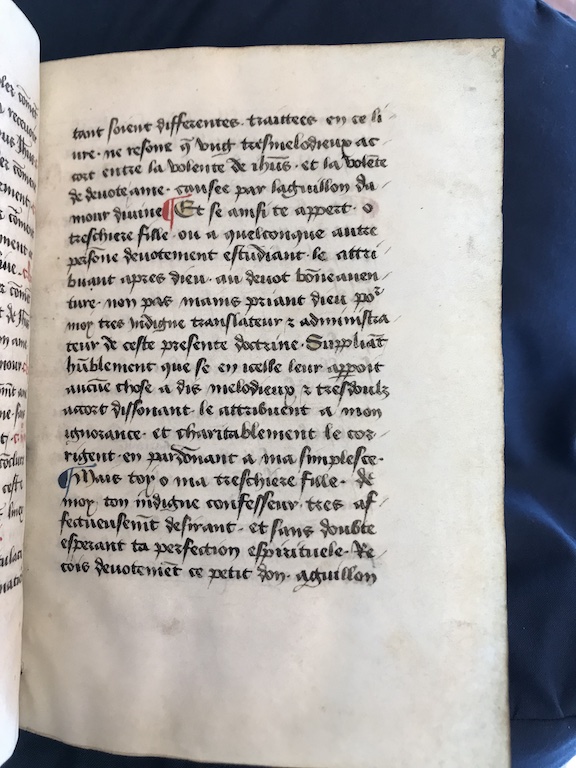 8
tant soient differentes. traittees en ce li
ure. ne resone q̃ vng tresmelodieux ac
cort entre la volente de ihūs. et la volēte
de deuote ame. causee par laguillon da
mour diuine ¶ Et se ainsi te appert. o
treschiere fille. ou a quelconque autre
persōne deuotement estudiant. le attri
buant apres dieu. au deuot bōneauen
ture. non pas mains priant dieu por
moy tres indigne translateur ⁊ administra
teur de ceste presente doctrine. Suppliāt
hūblement que se en icelle leur appoit
aucūe chose a dis melodieux ⁊ tresdoulz
accort dissonant. le attribuent a mon
ignorance. et charitablement le cor
rigent. en pardōnant a ma simplesce.
¶ Mais toy o ma treschiere fille. de
moy ton indigne confesseur. tres af
fectueusemēt desirant. et sans doubte
esperant ta perfection espirituele. Re
cois deuotemēt ce petit don. aguillon